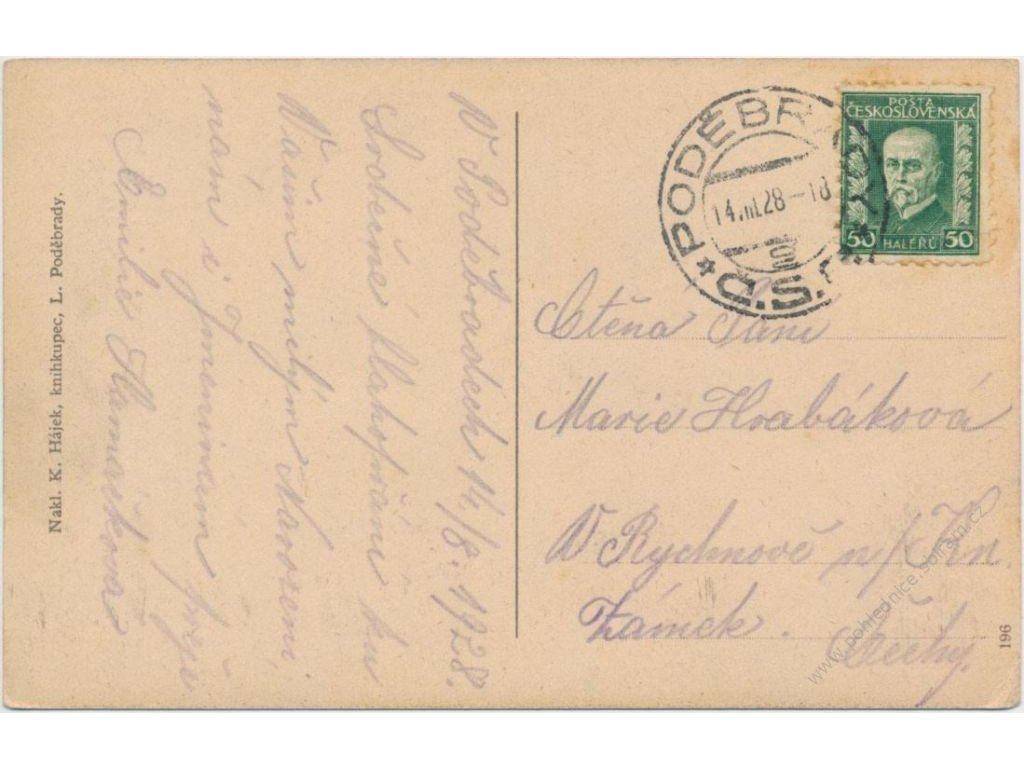 Nakl. K. Hájek, knihkupec, L. Poděbrady.
V Poděbradech 14/8. 1928.
Srdečné blahopřání ku
Vašim milým Narozeni-
nám i Jmeninám přeje
Emilie
PODĚBRADY
14.VIII.28-18
2
Č.S.R.
POŠTA
ČESKOSLOVENSKÁ
50 HALÉŘŮ 50
Ctěná Paní
Marie Hrabáková
V Rychnově n/Kn
Zámek.
Čechy.
196
www.pohlednice.sberatel.cz